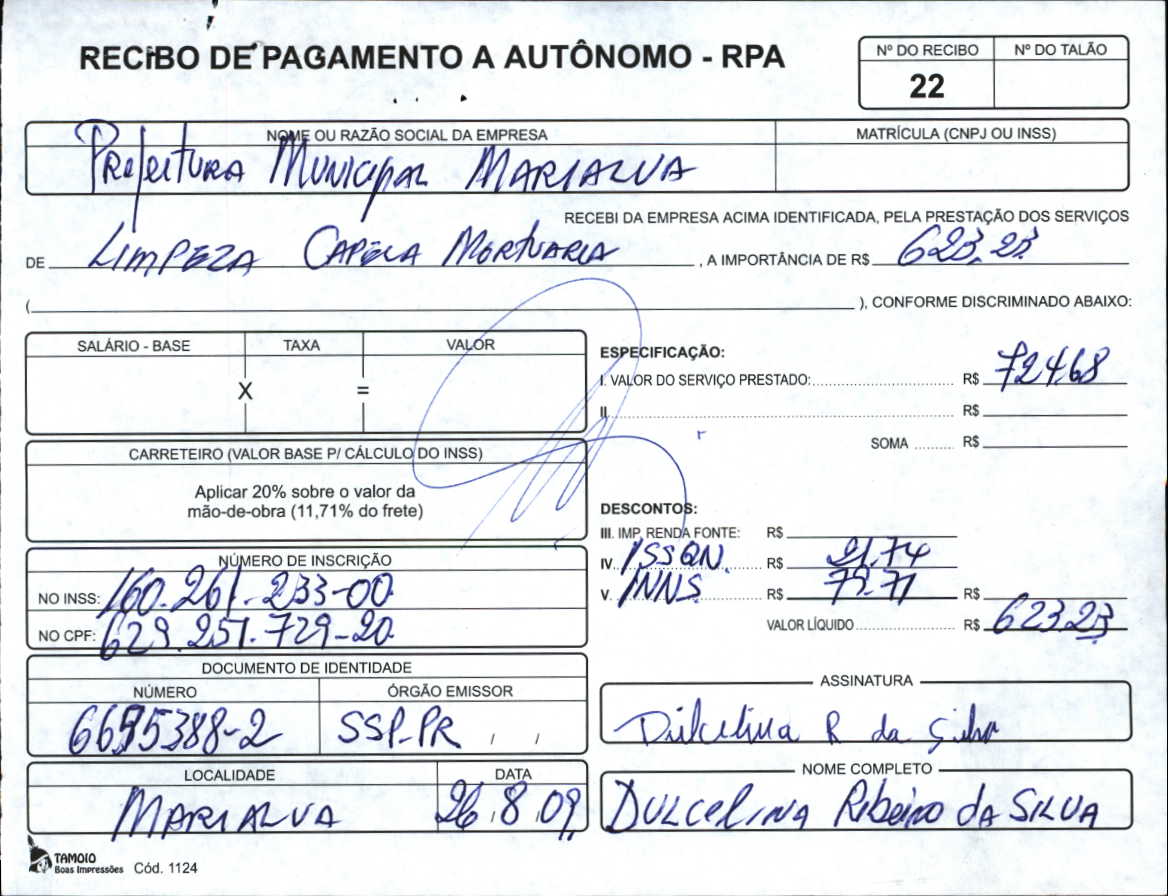 RECIBO DE PAGAMENTO A AUTÔNOMO - RPA
Nº DO RECIBO Nº DO TALÃO
22
NOME OU RAZÃO SOCIAL DA EMPRESA MATRÍCULA (CNPJ OU INSS)
Prefeitura Municipal Marialva
RECEBI DA EMPRESA ACIMA IDENTIFICADA, PELA PRESTAÇÃO DOS SERVIÇOS
DE Limpeza Capela Mortuaria, A IMPORTÂNCIA DE R$ 623,23
( ), CONFORME DISCRIMINADO ABAIXO:
SALÁRIO - BASE TAXA VALOR
X =
CARRETEIRO (VALOR BASE P/ CÁLCULO DO INSS)
Aplicar 20% sobre o valor da
mão-de-obra (11,71% do frete)
NÚMERO DE INSCRIÇÃO
NO INSS: 160.261.233-00
NO CPF: 629.251.729-20
DOCUMENTO DE IDENTIDADE
NÚMERO ÓRGÃO EMISSOR
6695388-2 SSP-PR , ,
LOCALIDADE DATA
Marialva 26.8.09
ESPECIFICAÇÃO:
I. VALOR DO SERVIÇO PRESTADO: R$ 724,68
II. R$
SOMA R$
DESCONTOS:
III. IMP. RENDA FONTE: R$
IV. ISSQN. R$ 21.74
V. INNS. R$ 79.71 R$
VALOR LÍQUIDO R$ 623,23
ASSINATURA
Dulcelina R da Silva
NOME COMPLETO
Dulcelina Ribeiro da Silva
TAMOIO
Boas Impressões Cód. 1124